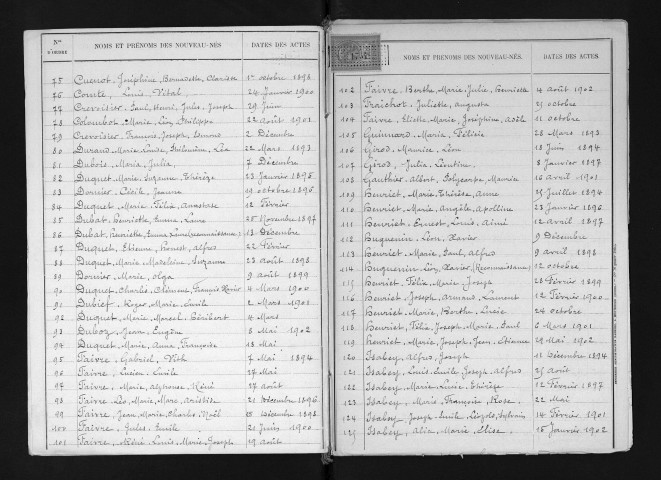 Nos D'ORDRE NOMS ET PRÉNOMS DES NOUVEAU-NÉS DATES DES ACTES
75 Cuenot, Joséphine, Bernadette, Clarisse 1er octobre 1898
76 Comte, Louis, Vital 24 Janvier 1900
77 Crevoisier, Paul, Henri, Jules, Joseph 29 Juin
78 Colombot, Marie, Léon, Philippe 23 août 1901
79 Crevoisier, François, Joseph, Edmond 2 Décembre
80 Durand, Marie, Louise, Philomène, Léa 22 Mars 1893
81 Dubois, Maria, Julia 7 Décembre
82 Duquet, Marie, Suzanne, Thérèse 23 Janvier 1895
83 Dornier, Cécile, Jeanne 19 octobre 1896
84 Duquet, Marie, Félix, Anastase 12 Février
85 Dubat, Henriette, Emma, Laure 25 Novembre 1897
86 Dubat, Henriette, Emma, Laure (reconnaissance) 13 Décembre
87 Duquet, Etienne, Ernest, Alfred 22 Février
88 Duquet, Marie, Madeleine, Suzanne 23 août 1898
89 Dornier, Marie, Olga 9 août 1899
90 Duquet, Charles, Clément, François Xavier 4 Mars 1900
91 Dubief, Roger, Marie, Emile 2 Mars 1901
92 Duquet, Marie, Marcel, Héribert 4 Mars
93 Duboz, Jean, Eugène 8 Mai 1902
94 Duquet, Marie, Anna, Françoise 18 Mai
95 Faivre, Gabriel, Vith 7 Mai 1894
96 Faivre, Lucien, Emile 27 Mai
97 Faivre, Marie, Alphonse, Réné 27 août
98 Faivre, Léo, Marie, Marc, Aristide 21 Décembre 1896
99 Faivre, Jean, Marie, Charles, Noël 25 Décembre 1898
100 Faivre, Jules, Emile 21 Juin 1900
101 Faivre, Réné, Louis, Marie, Joseph 19 août
NOMS ET PRÉNOMS DES NOUVEAU-NÉS. DATES DES ACTES
102 Faivre, Berthe, Marie, Julie, Henriette 4 août 1902
103 Fraichot, Juliette, Augusta 25 octobre
104 Faivre, Eliette, Marie, Joséphine, Adèle 11 octobre
105 Guinnard, Marie, Félicie 28 Mars 1893
106 Girod, Maurice, Léon 18 Juin 1894
107 Girod, Julia, Léontine 8 Janvier 1897
108 Gauthier, Albert, Polycarpe, Maurice 16 avril 1901
109 Henriet, Marie, Thérèse, Anne 25 Juillet 1894
110 Henriet, Marie, Angèle, Apolline 23 Janvier 1896
111 Henriet, Ernest, Louis, Aimé 12 avril 1897
112 Huguenin, Léon, Xavier 9 Décembre
113 Henriet, Marie, Paul, Alfred 9 avril 1898
114 Huguenin, Léon, Xavier (Reconnaissance) 12 octobre
115 Henriet, Félix, Marie, Joseph 28 Février 1899
116 Henriet, Joseph, Armand, Laurent 12 Février 1900
117 Henriet, Marie, Berthe, Lucie 24 octobre
118 Henriet, Félix, Joseph, Marie, Paul 5 Mars 1901
119 Henriet, Marie, Joseph, Jean, Etienne 29 Mai 1902
120 Isabey, Alfred, Joseph 11 Décembre 1894
121 Isabey, Louis, Emile, Joseph, Alfred 25 août
122 Isabey, Marie, Lucie, Thérèse 12 Février 1897
123 Isabey, Marie, François, Rose 22 Mai
124 Isabey, Joseph, Emile, Léopold, Sylvain 14 Février 1901
125 Isabey, Alix, Marie, Elise 15 Janvier 1902